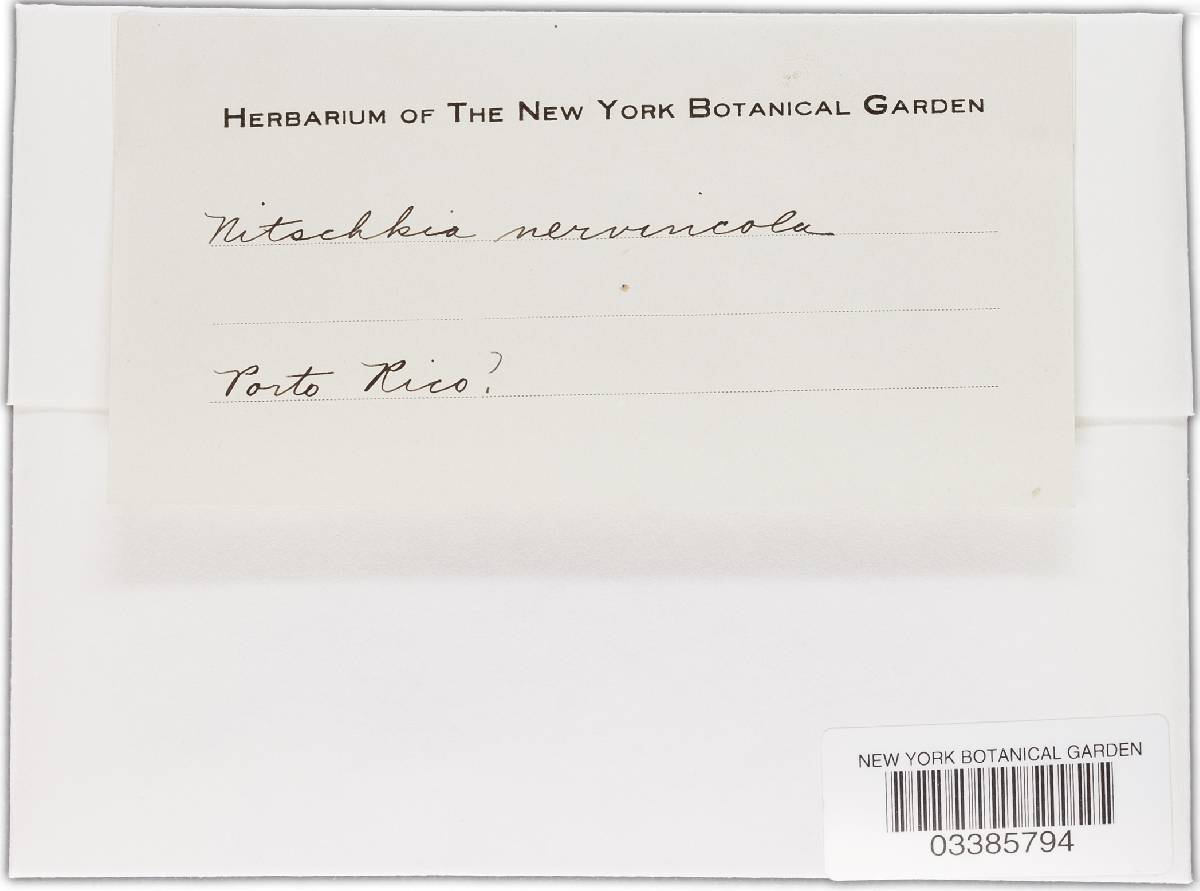 HERBARIUM OF THE NEW YORK BOTANICAL GARDEN
Nitschkia nervincola
Porto Rico?
NEW YORK BOTANICAL GARDEN
03385794